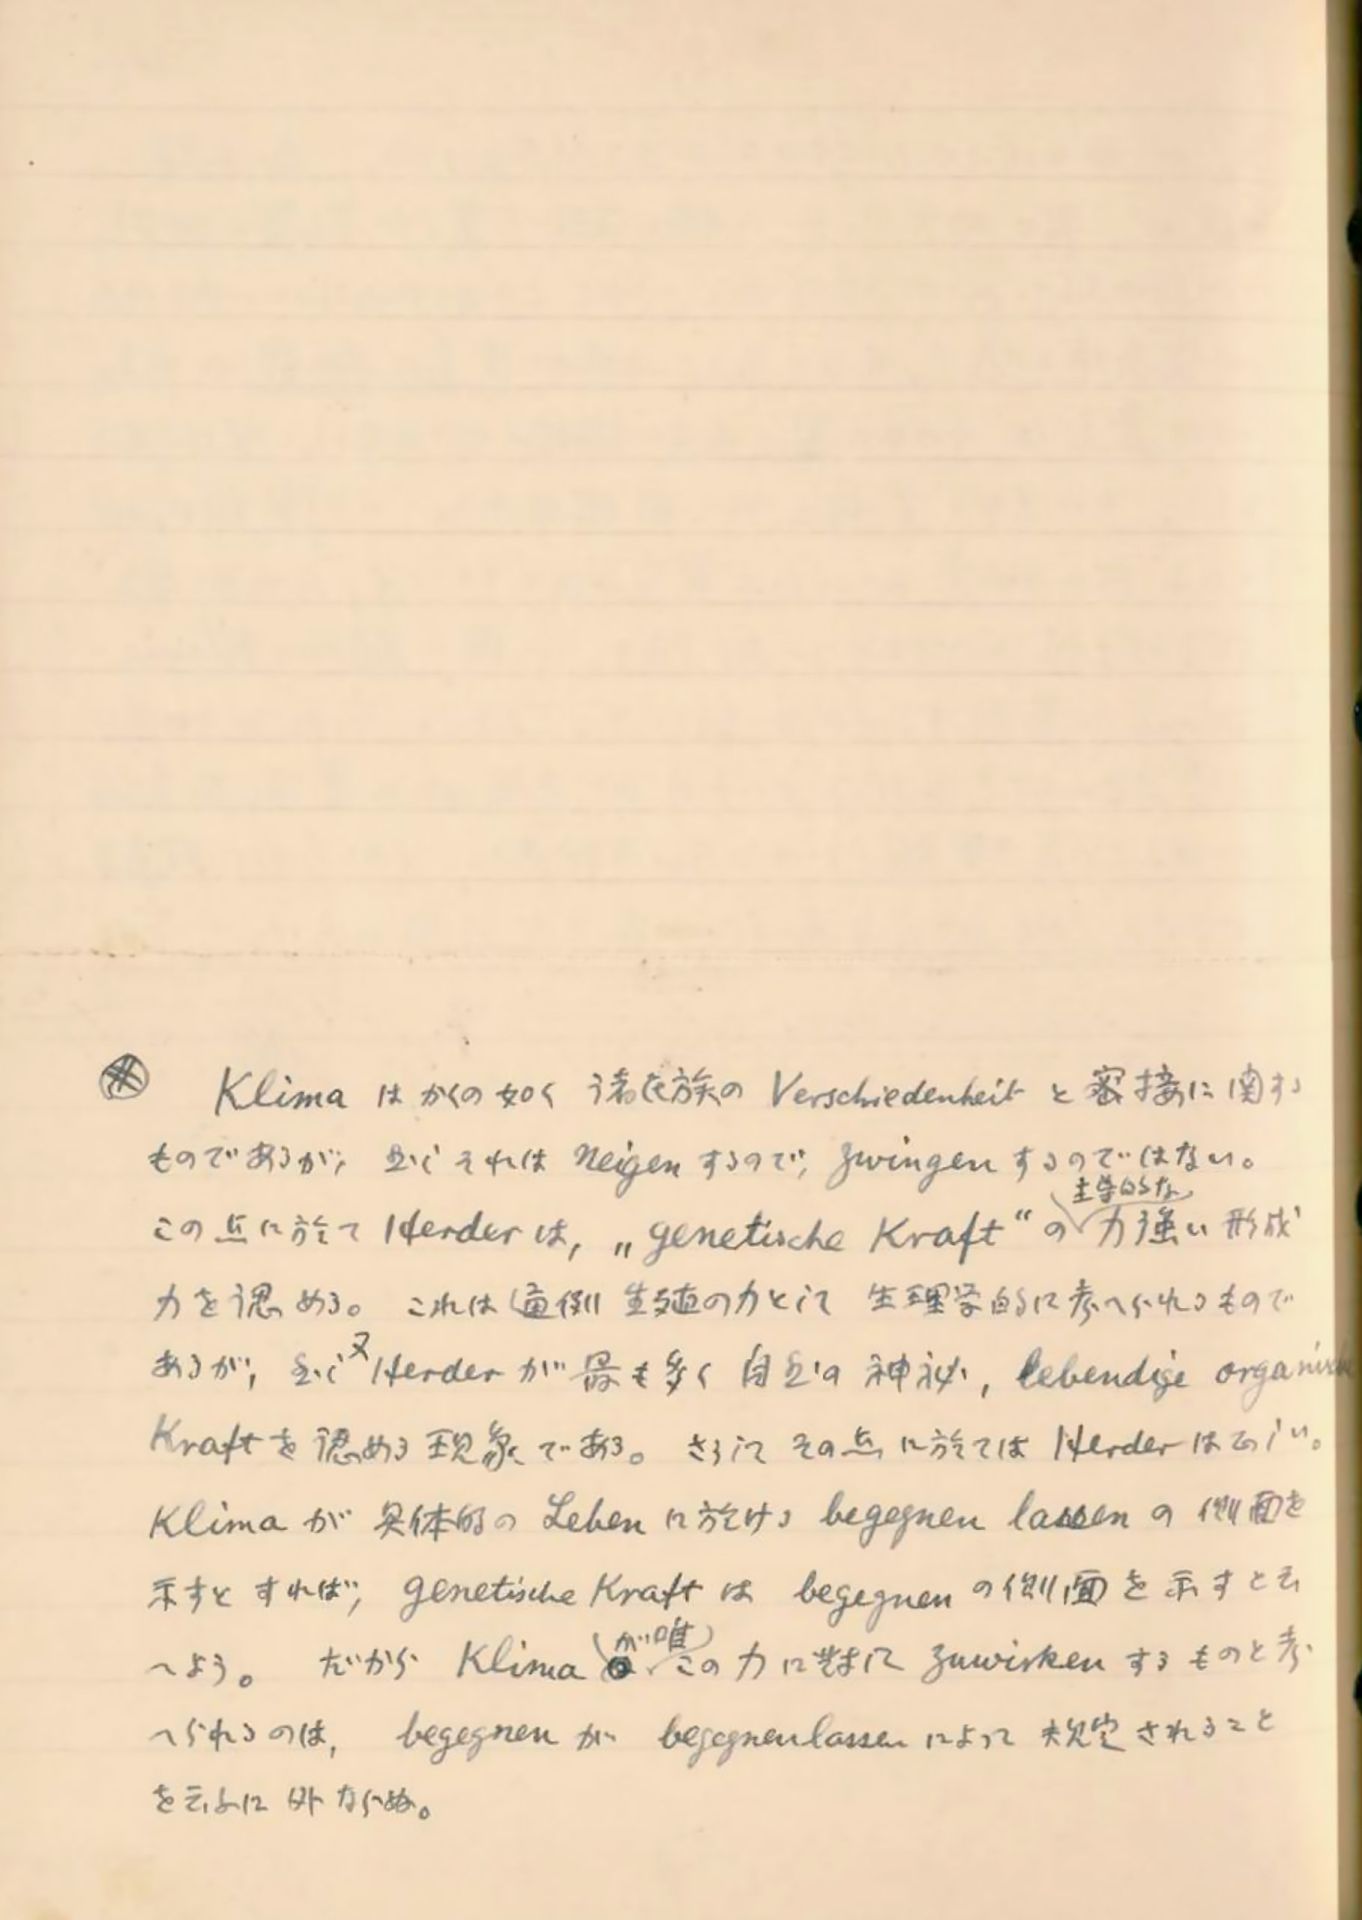 Klima はかくの如く 諸民族の Verschiedenheit と密接に関する
ものであるが、然しそれは neigen するので、zwingen するのではない。
この点に於て Herder は, „genetische Kraft“ の 力強い形成
力を認める。これは通例生殖の力として 生理学的に考へられるもので
あるが、然し又 Herder が最も多く自然の神秘, lebendige organische
Kraft を認める現象である。さうしてその点に於ては Herder は正しい。
Klima が具体的の Leben に於ける begegnen lassen の側面を
示すとすれば, genetische Kraft は begegnen の側面を示すと云
へよう。だから Klima が唯この力に対して zuwirken するものと考
へられるのは, begegnen が begegnenlassen によって規定されること
を云ふに外ならぬ。